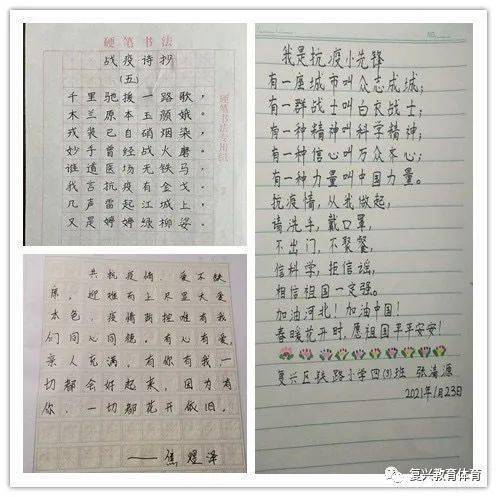 硬笔书法
战疫诗抄
(五)
千里驰援一路歌，
木兰原本玉颜娥。
戎装已自硝烟染，
妙手曾经战火磨。
谁道医场无铁马，
我言抗疫有金戈。
几声雷起江城上，
又是婷婷绿柳婆。
硬笔书法专用纸
共抗疫情，爱不缺
席，迎难而上尽显大爱
本色，疫情面担难有我
们同心同德，有心有爱，
亲人充满，有你有我，一
切都会好起来，因为有
你，一切都花开依旧。
——焦煜泽
我是抗疫小先锋
有一座城市叫众志成城；
有一群战士叫白衣战士；
有一种精神叫科学精神；
有一种信心叫万众一心；
有一种力量叫中国力量。
抗疫情，从我做起，
请洗手，戴口罩，
不出门，不聚餐，
信科学，拒信谣，
相信祖国一定强。
加油河北！加油中国！
春暖花开时，愿祖国平平安安！
复兴区铁路小学四(3)班 张海源
2021年1月23日
复兴教育体育